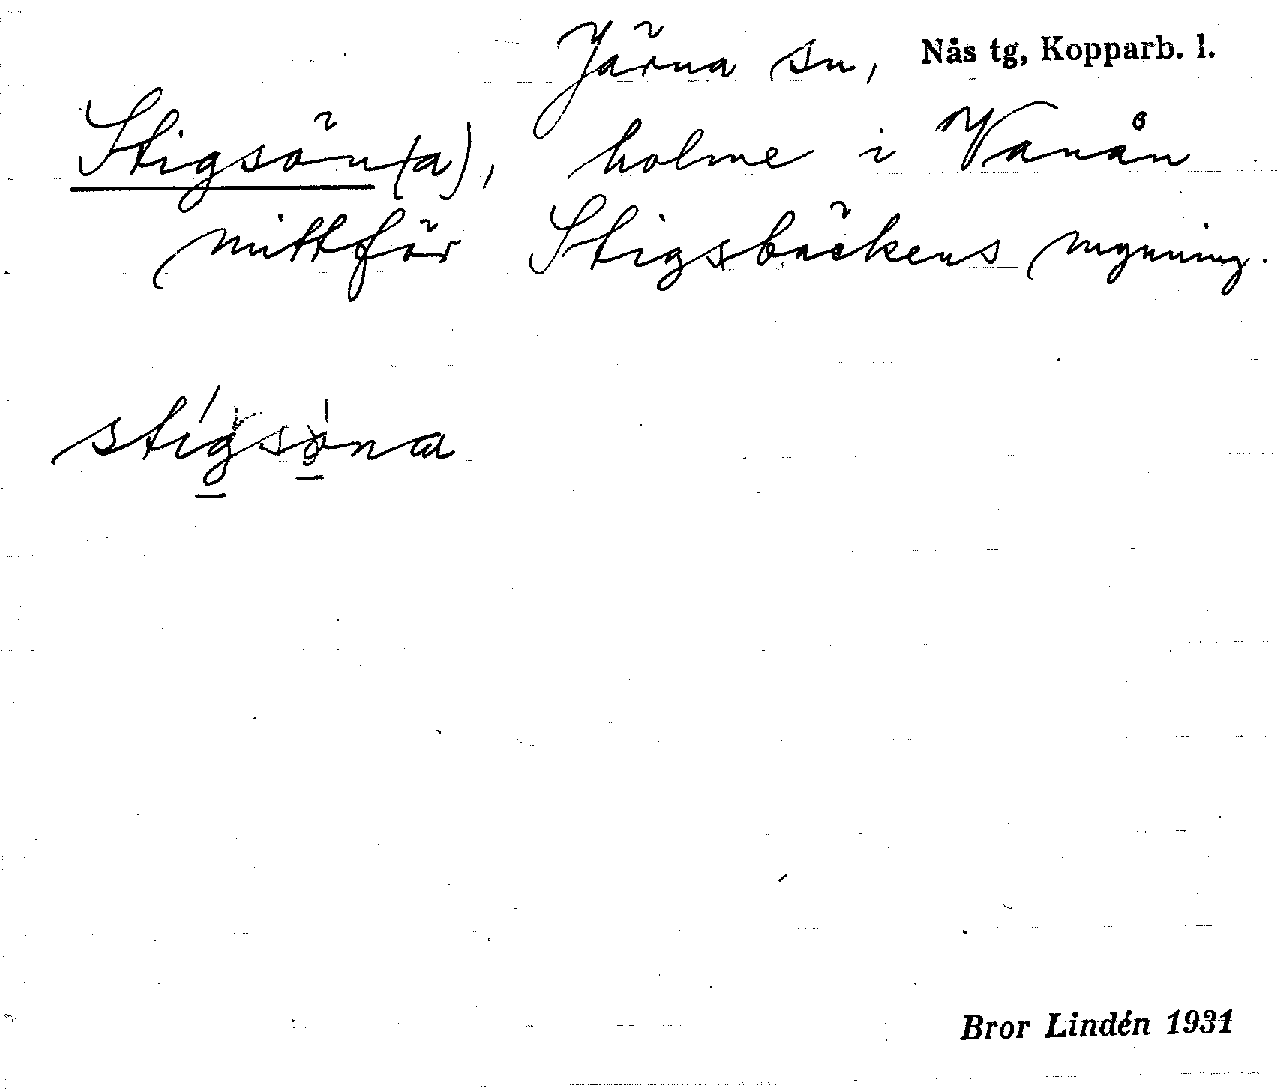 Järna sn, Nås tg, Kopparb. l.
Stigsön(a), holme i Vanån
mittför Stigsbäckens mynning.
stigsöna
Bror Lindén 1931